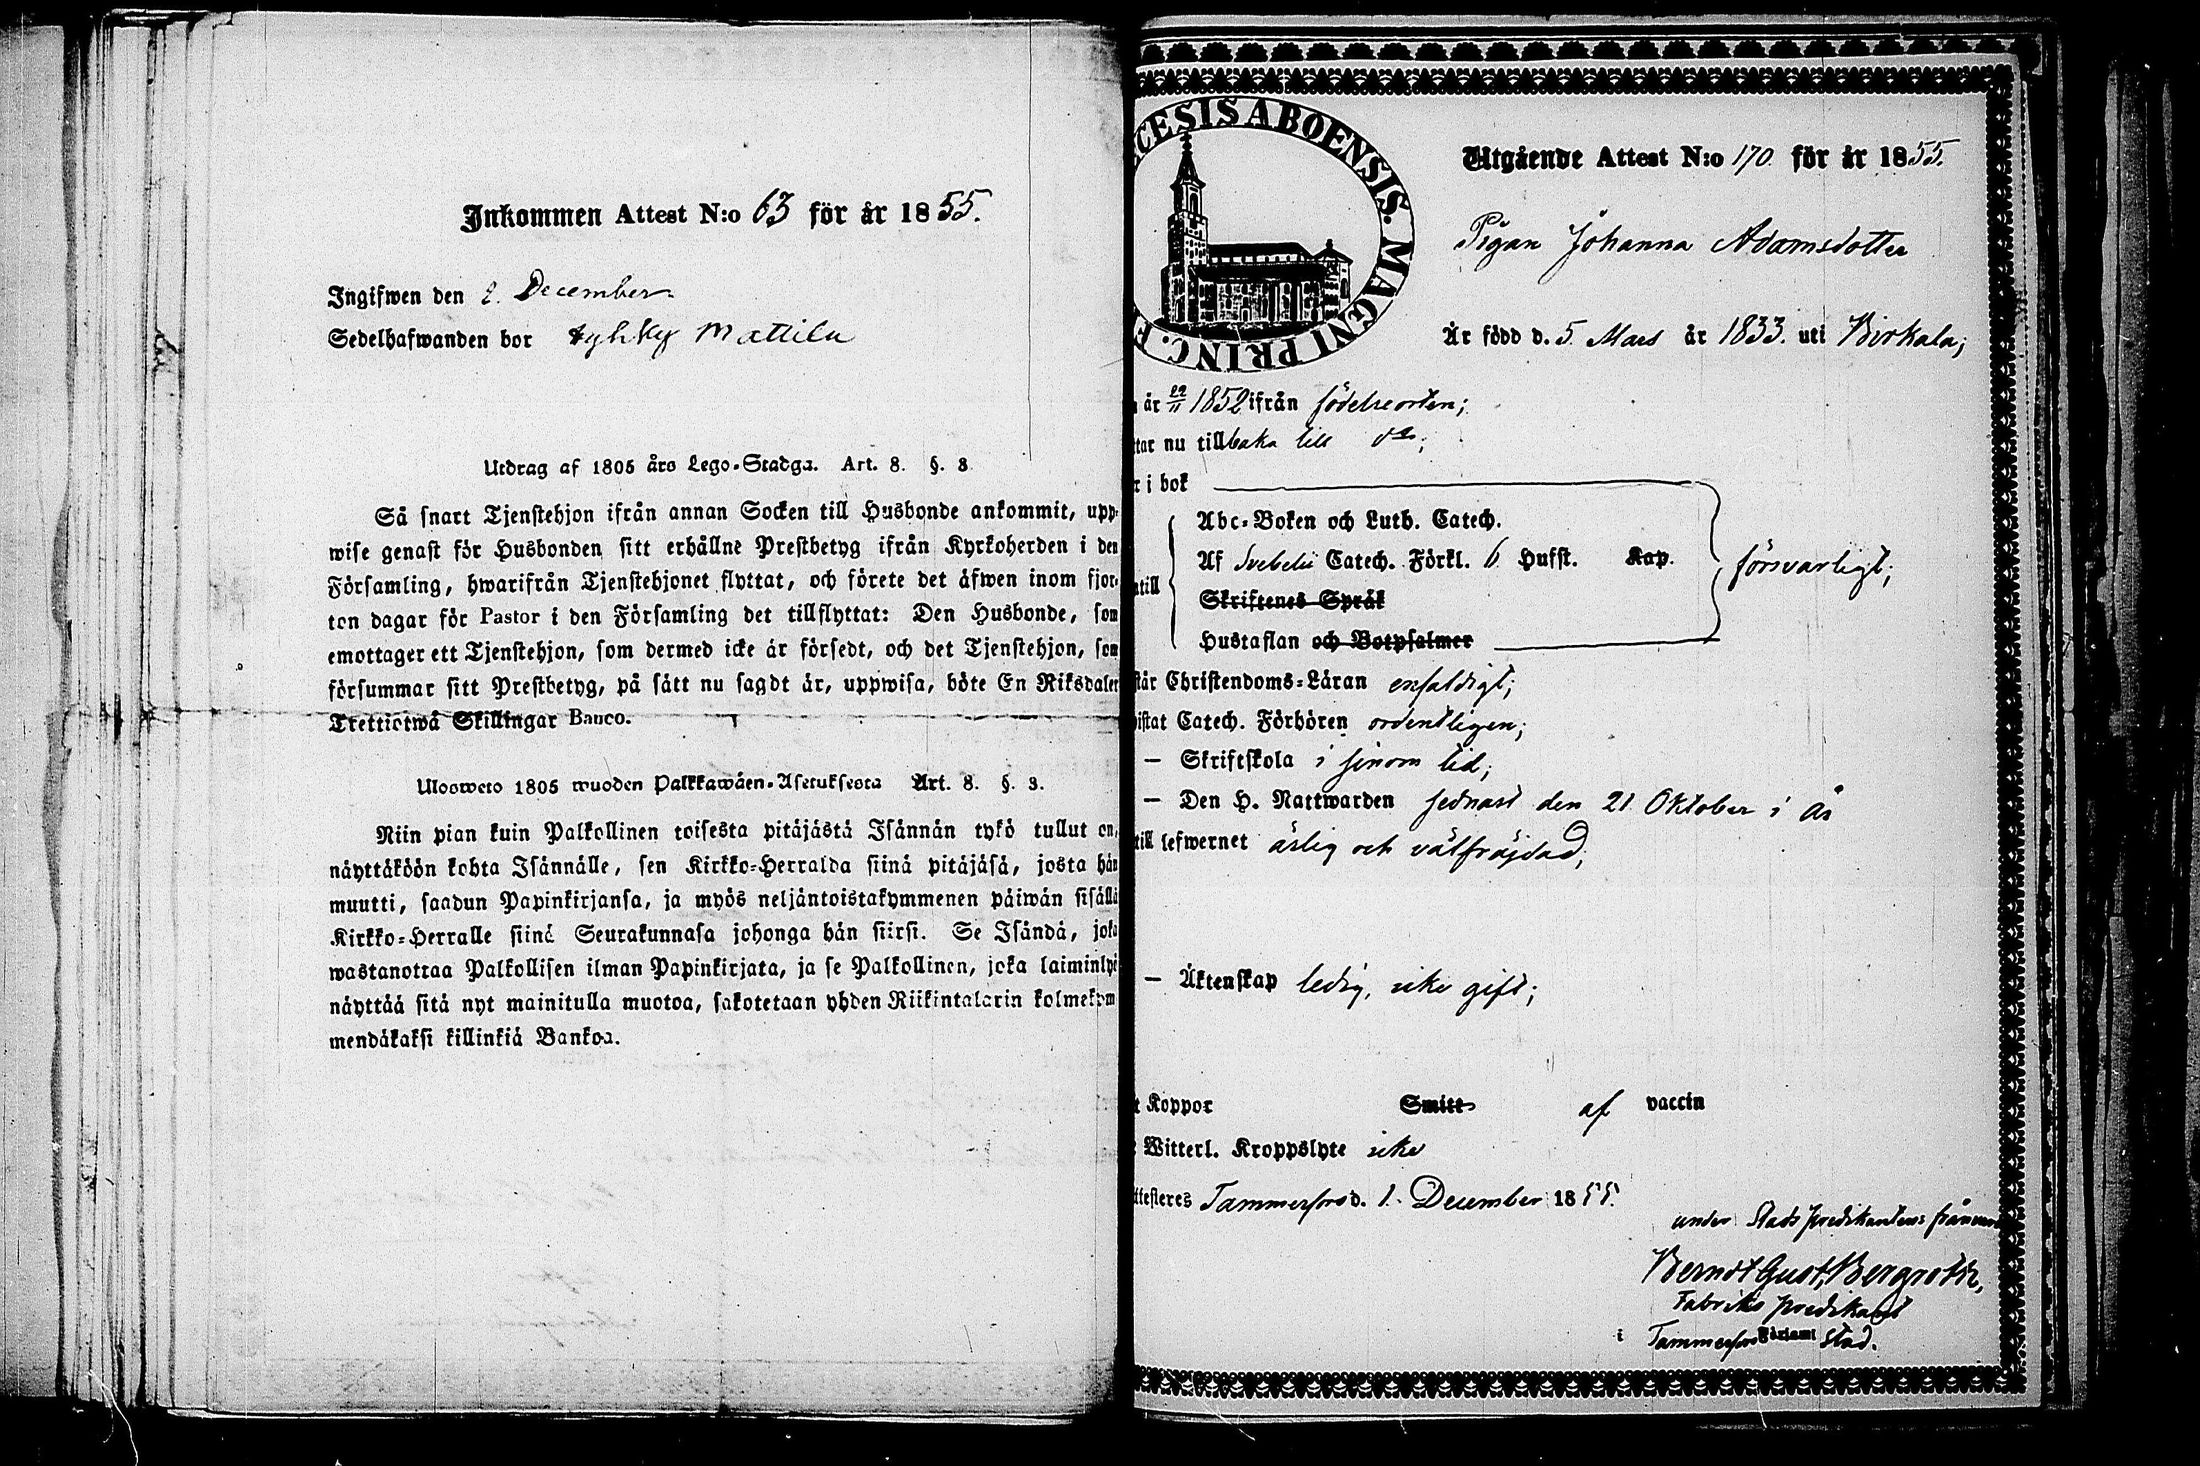 Inkommen Attest N:o 63 för år 1855.
Ingifwen den 2. December
Sedelhafwanden bor Hyhky Mattila
Utdrag af 1805 års Lego-Stadga. Art. 8. §. 3
Så snart Tjenstehjon ifrån annan Socken till Husbonde ankommit, upp-
wise genast för Husbonden sitt erhållne Prestbetyg ifrån Kyrkoherden i den
Församling, hwarifrån Tjenstehjonet flyttat, och förete det äfwen inom fjor-
ton dagar för Pastor i den Församling det tillflyttat: Den Husbonde, som
emottager ett Tjenstehjon, som dermed icke är försedt, och det Tjenstehjon, som
försummar sitt Prestbetyg, på sätt nu sagdt är, uppwisa, böte En Riksdaler
Trettiotwå Skillingar Banco.
Uloswelo 1805 wuoden Palkkawäen-Asetuksesta Art. 8. §. 3.
Niin pian kuin Palkollinen toisesta pitäjästä Isännän tykö tullut on,
näyttäköön kohta Isännälle, sen Kirkko-Herralda siinä pitäjäsä, josta hän
muutti, saadun Papinkirjansa, ja myös neljäntoistakymmenen päiwän sisällä
Kirkko-Herralle siinä Seurakunnasa johonga hän siirsi. Se Isändä, joka
wastanottaa Palkollisen ilman Papinkirjata, ja se Palkollinen, joka laiminlyö
näyttää sitä nyt mainitulla muotoa, sakotetaan yhden Riikintalarin kolmekym
mendäkaksi killinkiä Bankoa.
CESIS ABOENSIS. MAGNI PRINC. F
Utgående Attest N:o 170 för år 1855.
Pigan Johanna Adamsdotter
Är född d. 5 Mars år 1833. uti Birkala;
år 22/11 1852 ifrån födelseorten;
tar nu tillbaka till do;
r i bok
Abc-Boken och Luth. Catech.
Af Svebelii Catech. Förkl. 6 Hufst. Kap.
försvarligt;
ntill
Skriftenes Språk
Hustaflan och Botpsalmer
står Christendoms-Läran enfaldigt;
vistat Catech. Förhören ordentligen;
— Skriftskola i sinom tid;
— Den H. Nattwarden sednast den 21 Oktober i år
till lefwernet ärlig och välfräjdad;
— Äktenskap ledig, icke gift;
t Koppor Smitt af vaccin
Witterl. Kroppslyte icke
ttesteres Tammerfors d. 1. December 1855.
under Stads predikantens frånvaro
Berndt Gust. Bergroth,
Fabriks predikant
i Tammerfors Församl Stad.